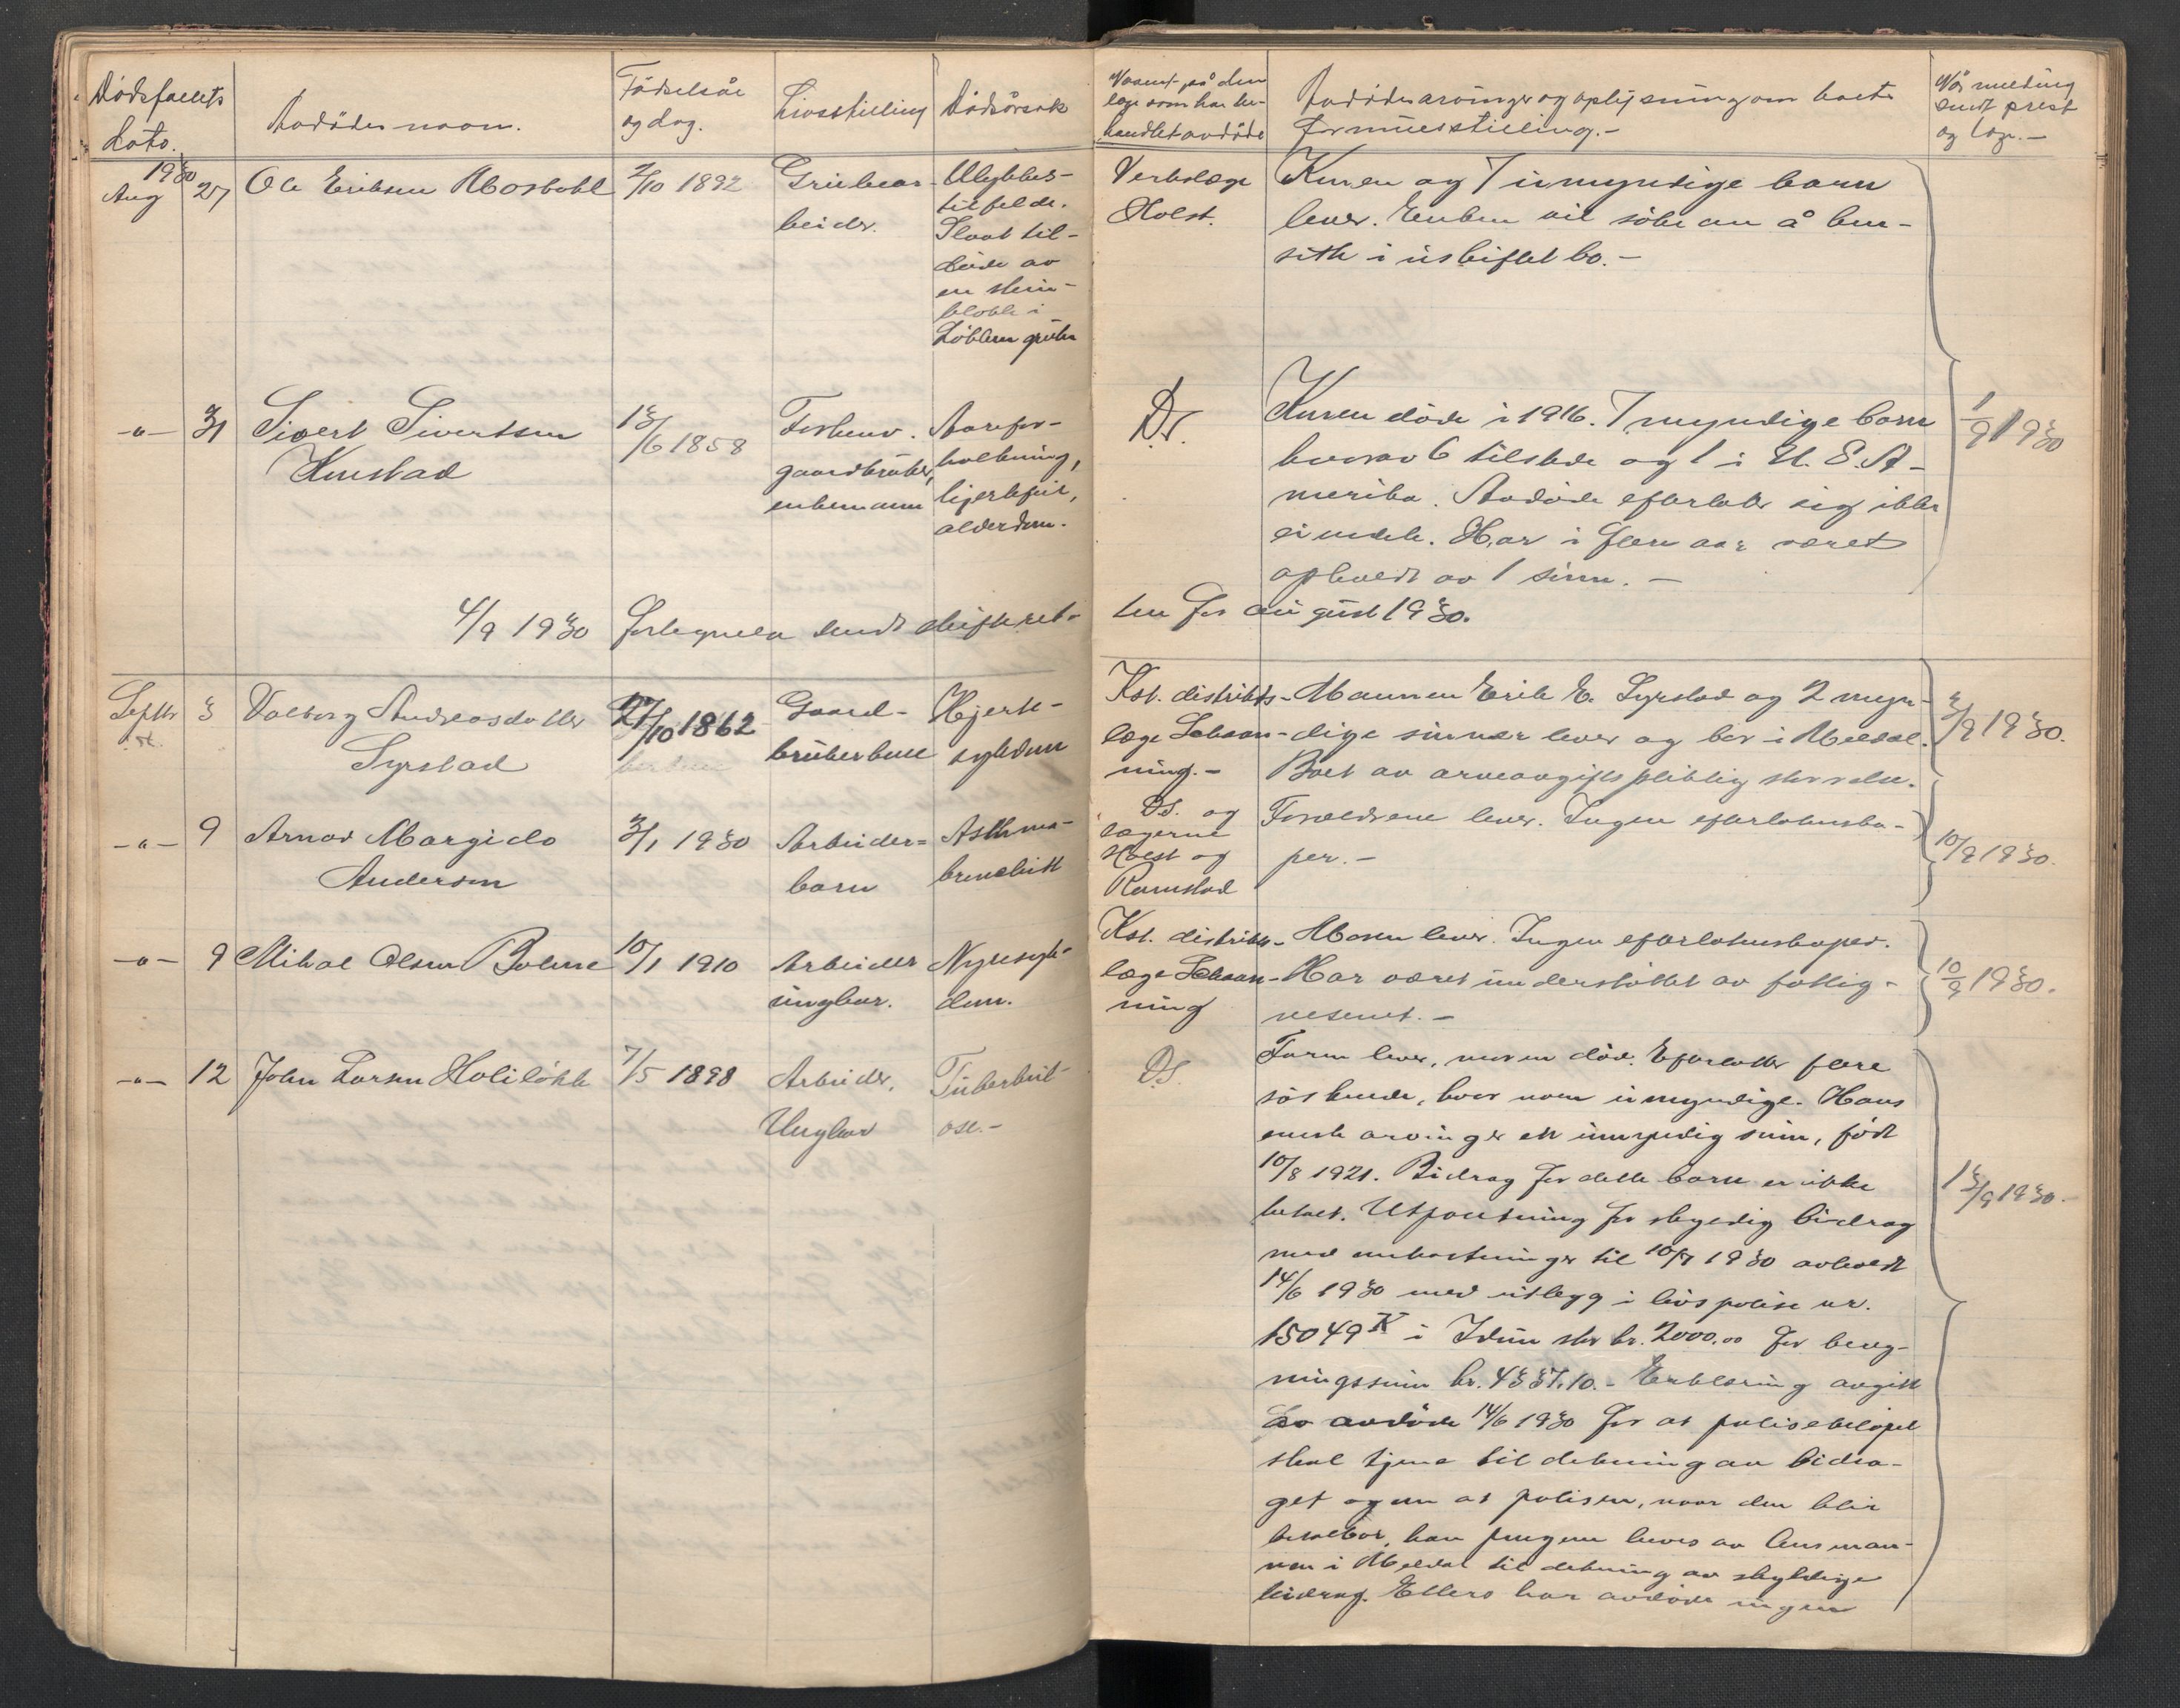 Dødsfallets
dato.
Avdødes navn.
Fødselsår
og dag.
Livsstilling
Dødsårsak
Navnet på den
læge som har be-
handlet avdøde
Avdødes arvinger og oplysning om boets
formuesstilling.-
Når melding
sendt prest
og læge.-
1930
Aug 27
Ole Eriksen Mosbøhl
2/10 1892
Grubear-
beider.
Ulykkes-
tilfelde.
Slaat til-
døde av
en stein-
blokk i
Løkken grube
Verkslæge
Holst.
Konen og 7 umyndige barn
lever. Enken vil søke om å hen-
sitte i uskiftet bo.-
-"- 31
Sivert Sivertsen
Kinstad
13/6 1858
Forhenv.
gaardbruker,
enkemann
Aarefor-
kalkning,
hjertefeil,
alderdom.
Ds.
Konen døde i 1916. 7 myndige barn
hvorav 6 tilstede og 1 i U. S. A-
merika. Avdøde efterlater sig ikke
eiendele. Har i flere aar været
opholdt av 1 sønn.-
1/9 1930
4/9 1930 Fortegnelse sendt skifteret-
ten for august 1930.
Septbr 3
Valborg Andreasdatter
Syrstad
27/10 1862
Gaard-
brukerkone
Hjerte-
sykdom
Kst. distrikts-
læge Schaan-
ning.-
Mannen Erik E. Syrstad og 2 myn-
dige sønner lever og bor i Meldal.
Boet av arveavgiftspliktig størrelse.
3/9 1930.
-"- 9
Arnar Margido
Andersen
3/1 1930
Arbeider=
barn
Asthma-
bronchitt
Ds. og
lægerne
Holst og
Ramstad
Foreldrene lever. Ingen efterlatenska-
per.-
10/9 1930.
-"- 9
Mikal Olsen Bolme
10/1 1910
Arbeider
ungkar.
Nyresyk-
dom.
Kst. distrikts-
læge Schaan-
ning
Moren lever. Ingen efterlatenskaper.
Har været understøttet av fattig-
vesenet.-
10/9 1930.
-"- 12
John Larsen Holiløkk
7/5 1898
Arbeider,
Ungkar
Tuberkul-
ose.-
Ds.
Faren lever, moren død. Efterlater flere
søskende, hvor noen umyndige. Hans
eneste arving er en umyndig sønn, født
10/8 1921. Bidrag for dette barn er ikke
betalt. Utpantning for skyldig bidrag
med omkostninger til 10/7 1930 avholdt
14/6 1930 med utlegg i livspolise nr.
15049 K i Idun stor kr. 2000.00 for
ningssum kr. Erklæring avgitt
av avdøde 14/6 1930 for at polisebeløpet
skal tjene til dekning av bidra-
get og om at polisen, naar den blir
betalbar, kan pengene heves av lensman-
nen i Meldal til dekning av skyldige
bidrag. Ellers har avdøde ingen
13/9 1930.-